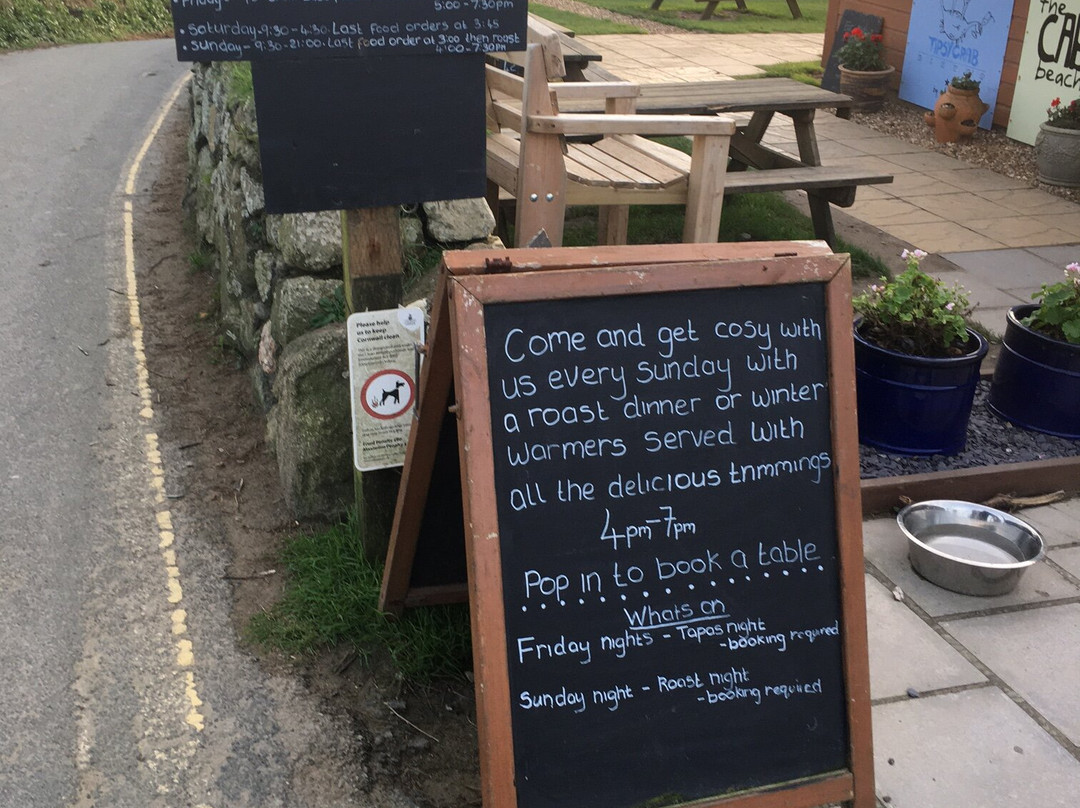 5:00 - 7:30pm
• Saturday - 9:30 - 4:30. Last food orders at 3:45
• Sunday - 9:30 - 21:00. Last food order at 3:00 then roast
4:00 - 7:30PM
Please help
us to keep
Cornwall clean
Come and get cosy with
us every Sunday with
a roast dinner or winter
warmers served with
all the delicious trimmings
4pm-7pm
Pop in to book a table
Whats on
Friday nights - Tapas night
- booking required
Sunday night - Roast night
- booking required
the
beach